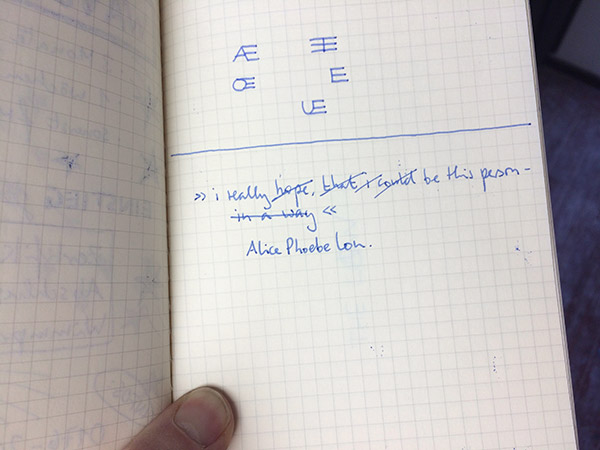 Æ
Œ E
UE
>> i really hope, that i could be this person -
in a way <<
Alice Phoebe Lou.